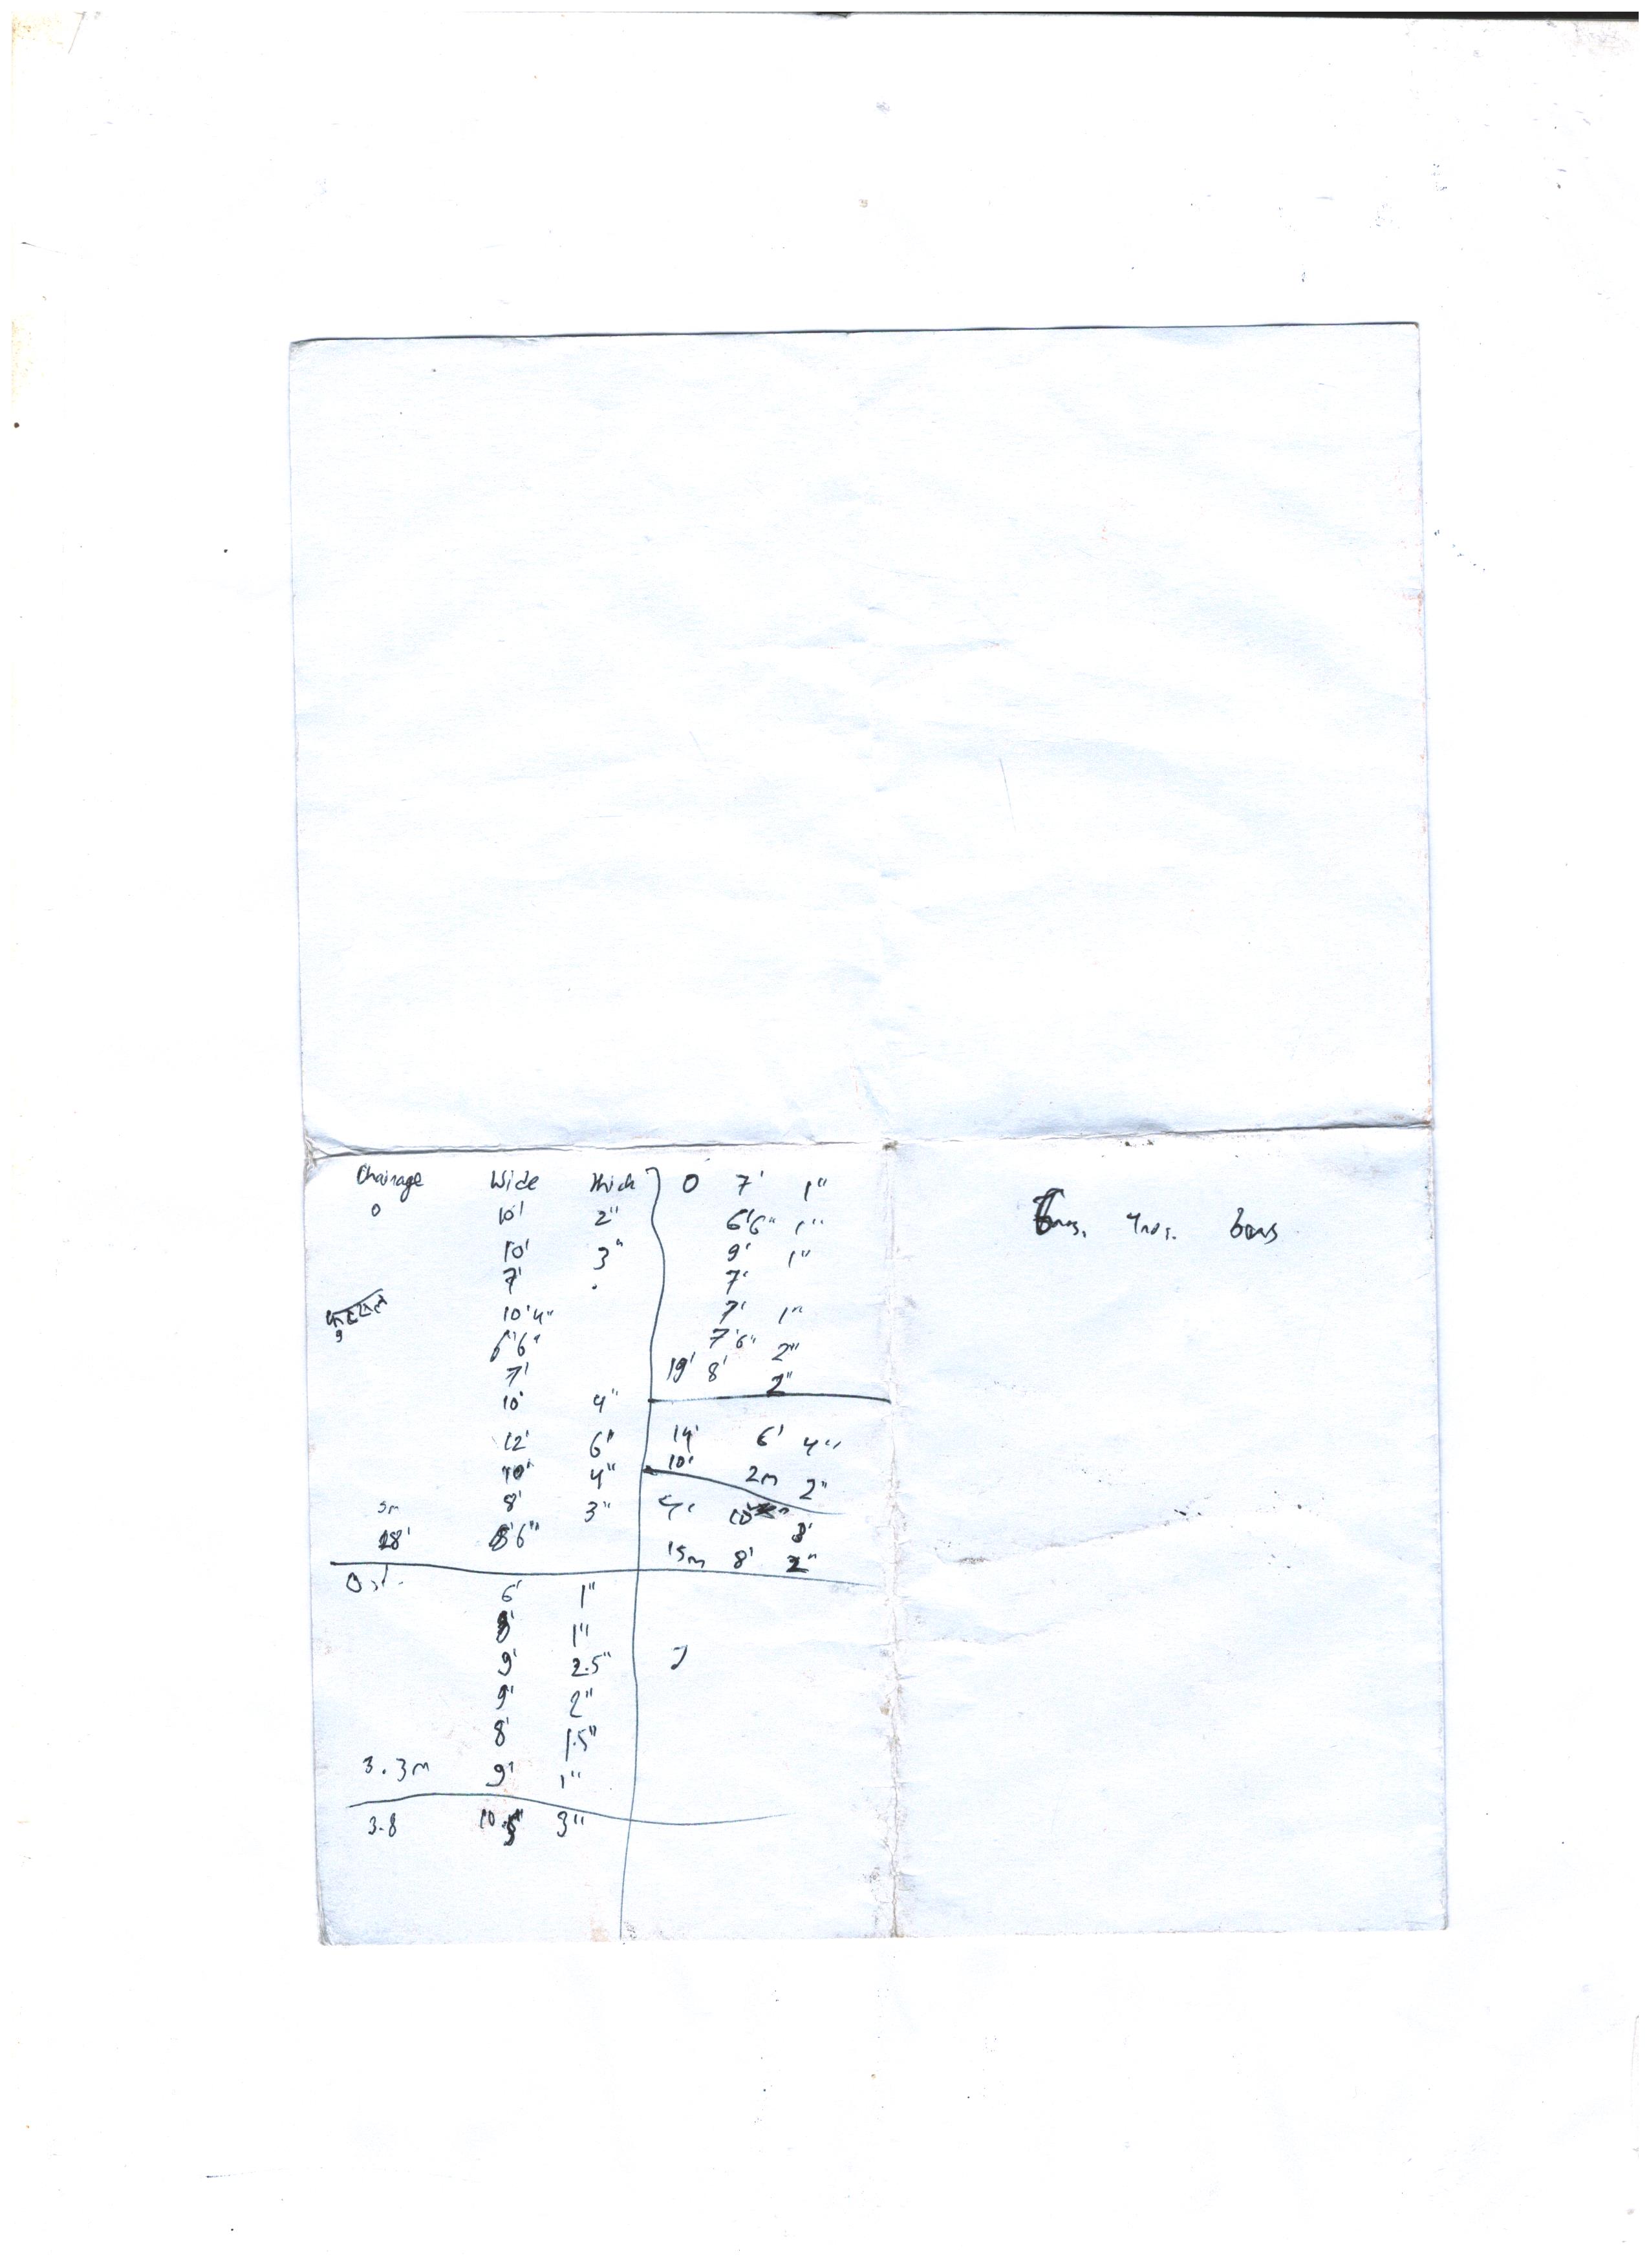 Chainage Wide thick
0 10' 2"
10' 3"
7'
10'4"
6'6"
7'
10' 4"
12' 6"
10' 4"
5m 8' 3"
28' 8'6"
6' 1"
8' 1"
9' 2.5"
9' 2"
8' 1.5"
3.3m 9' 1"
3.8 10. 3"
0 7' 1"
6'6" 1"
9' 1"
7'
7' 1"
7'6" 2"
19' 8' 2"
14' 6' 4"
10' 2m 2"
8'
15m 8' 2"
4nos.